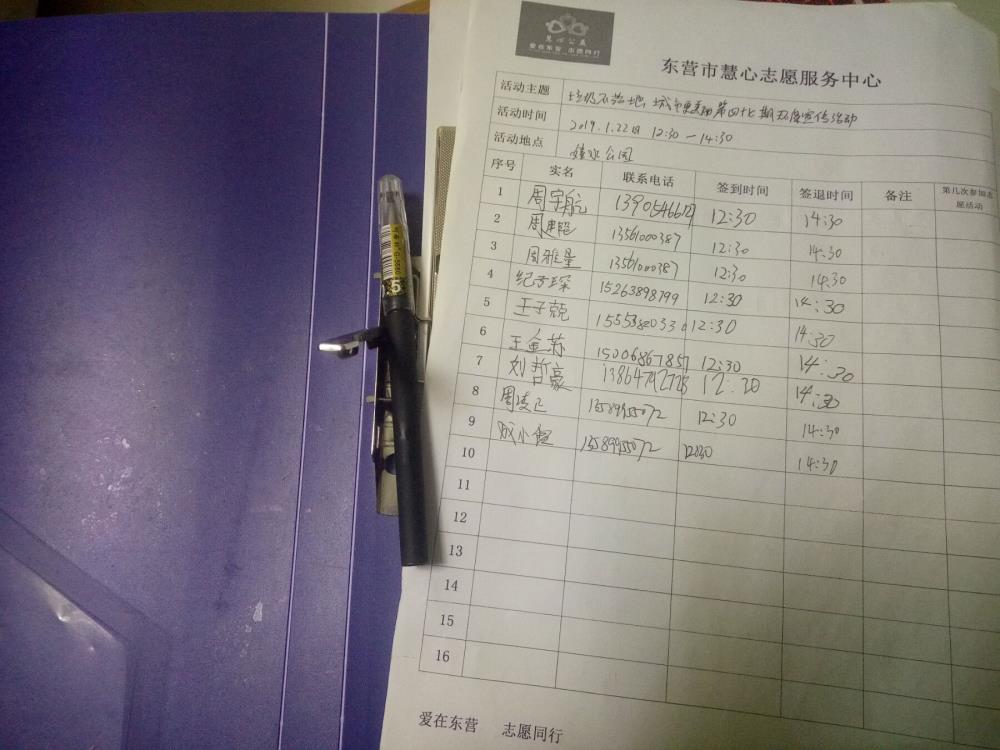 慧心公益
爱在东营 志愿同行
东营市慧心志愿服务中心
活动主题 垃圾不落地,城市更美丽第四十七期环保宣传活动
活动时间 2019.1.22日 12:30—14:30
活动地点 公园
序号 实名 联系电话 签到时间 签退时间 备注 第几次参加志愿活动
1 周宇航 12:30 14:30
2 13561000387 12:30 14:30
3 周雅呈 13561000387 12:30 14:30
4 15263898799 12:30 14:30
5 王子兢 12:30 14:30
6 15006867857 12:30 14:30
7 刘哲豪 13864742728 12:30 14:30
8 13589955072 12:30 14:30
9 13589955072 12:30 14:30
10
11
12
13
14
15
16
爱在东营 志愿同行
5